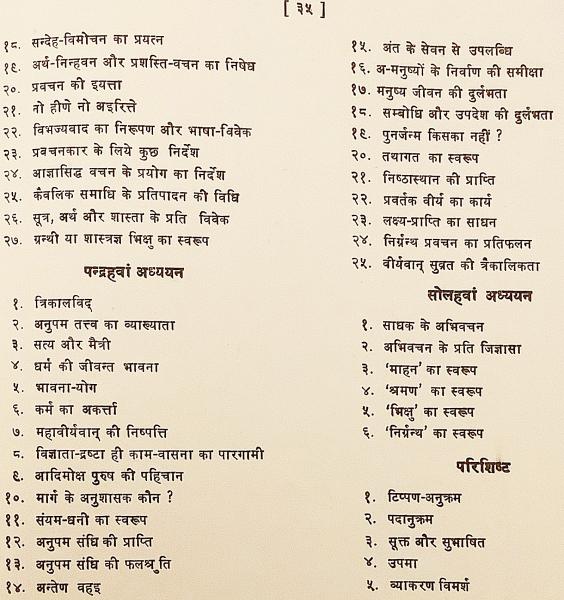 [ ३५ ]
१८. सन्देह-विमोचन का प्रयत्न
१९. अर्थ-निन्हवन और प्रशस्ति-वचन का निषेध
२०. प्रवचन की इयत्ता
२१. नो हीणे नो अइरित्ते
२२. विभज्यवाद का निरूपण और भाषा-विवेक
२३. प्रवचनकार के लिये कुछ निर्देश
२४. आज्ञासिद्ध वचन के प्रयोग का निर्देश
२५. कैवलिक समाधि के प्रतिपादन की विधि
२६. सूत्र, अर्थ और शास्ता के प्रति विवेक
२७. ग्रन्थी या शास्त्रज्ञ भिक्षु का स्वरूप
पन्द्रहवां अध्ययन
१. त्रिकालविद्
२. अनुपम तत्त्व का व्याख्याता
३. सत्य और मैत्री
४. धर्म की जीवन्त भावना
५. भावना-योग
६. कर्म का अकर्त्ता
७. महावीर्यवान् की निष्पत्ति
८. विज्ञाता-द्रष्टा ही काम-वासना का पारगामी
९. आदिमोक्ष पुरुष की पहिचान
१०. मार्ग के अनुशासक कौन ?
११. संयम-धनी का स्वरूप
१२. अनुपम संधि की प्राप्ति
१३. अनुपम संधि की फलश्रुति
१४. अन्तेण वहइ
१५. अंत के सेवन से उपलब्धि
१६. अ-मनुष्यों के निर्वाण की समीक्षा
१७. मनुष्य जीवन की दुर्लभता
१८. सम्बोधि और उपदेश की दुर्लभता
१९. पुनर्जन्म किसका नहीं ?
२०. तथागत का स्वरूप
२१. निष्ठास्थान की प्राप्ति
२२. प्रवर्तक वीर्य का कार्य
२३. लक्ष्य-प्राप्ति का साधन
२४. निर्ग्रन्थ प्रवचन का प्रतिफलन
२५. वीर्यवान् सुव्रत की त्रैकालिकता
सोलहवां अध्ययन
१. साधक के अभिवचन
२. अभिवचन के प्रति जिज्ञासा
३. ‘माहन’ का स्वरूप
४. ‘श्रमण’ का स्वरूप
५. ‘भिक्षु’ का स्वरूप
६. ‘निर्ग्रन्थ’ का स्वरूप
परिशिष्ट
१. टिप्पण-अनुक्रम
२. पदानुक्रम
३. सूक्त और सुभाषित
४. उपमा
५. व्याकरण विमर्श